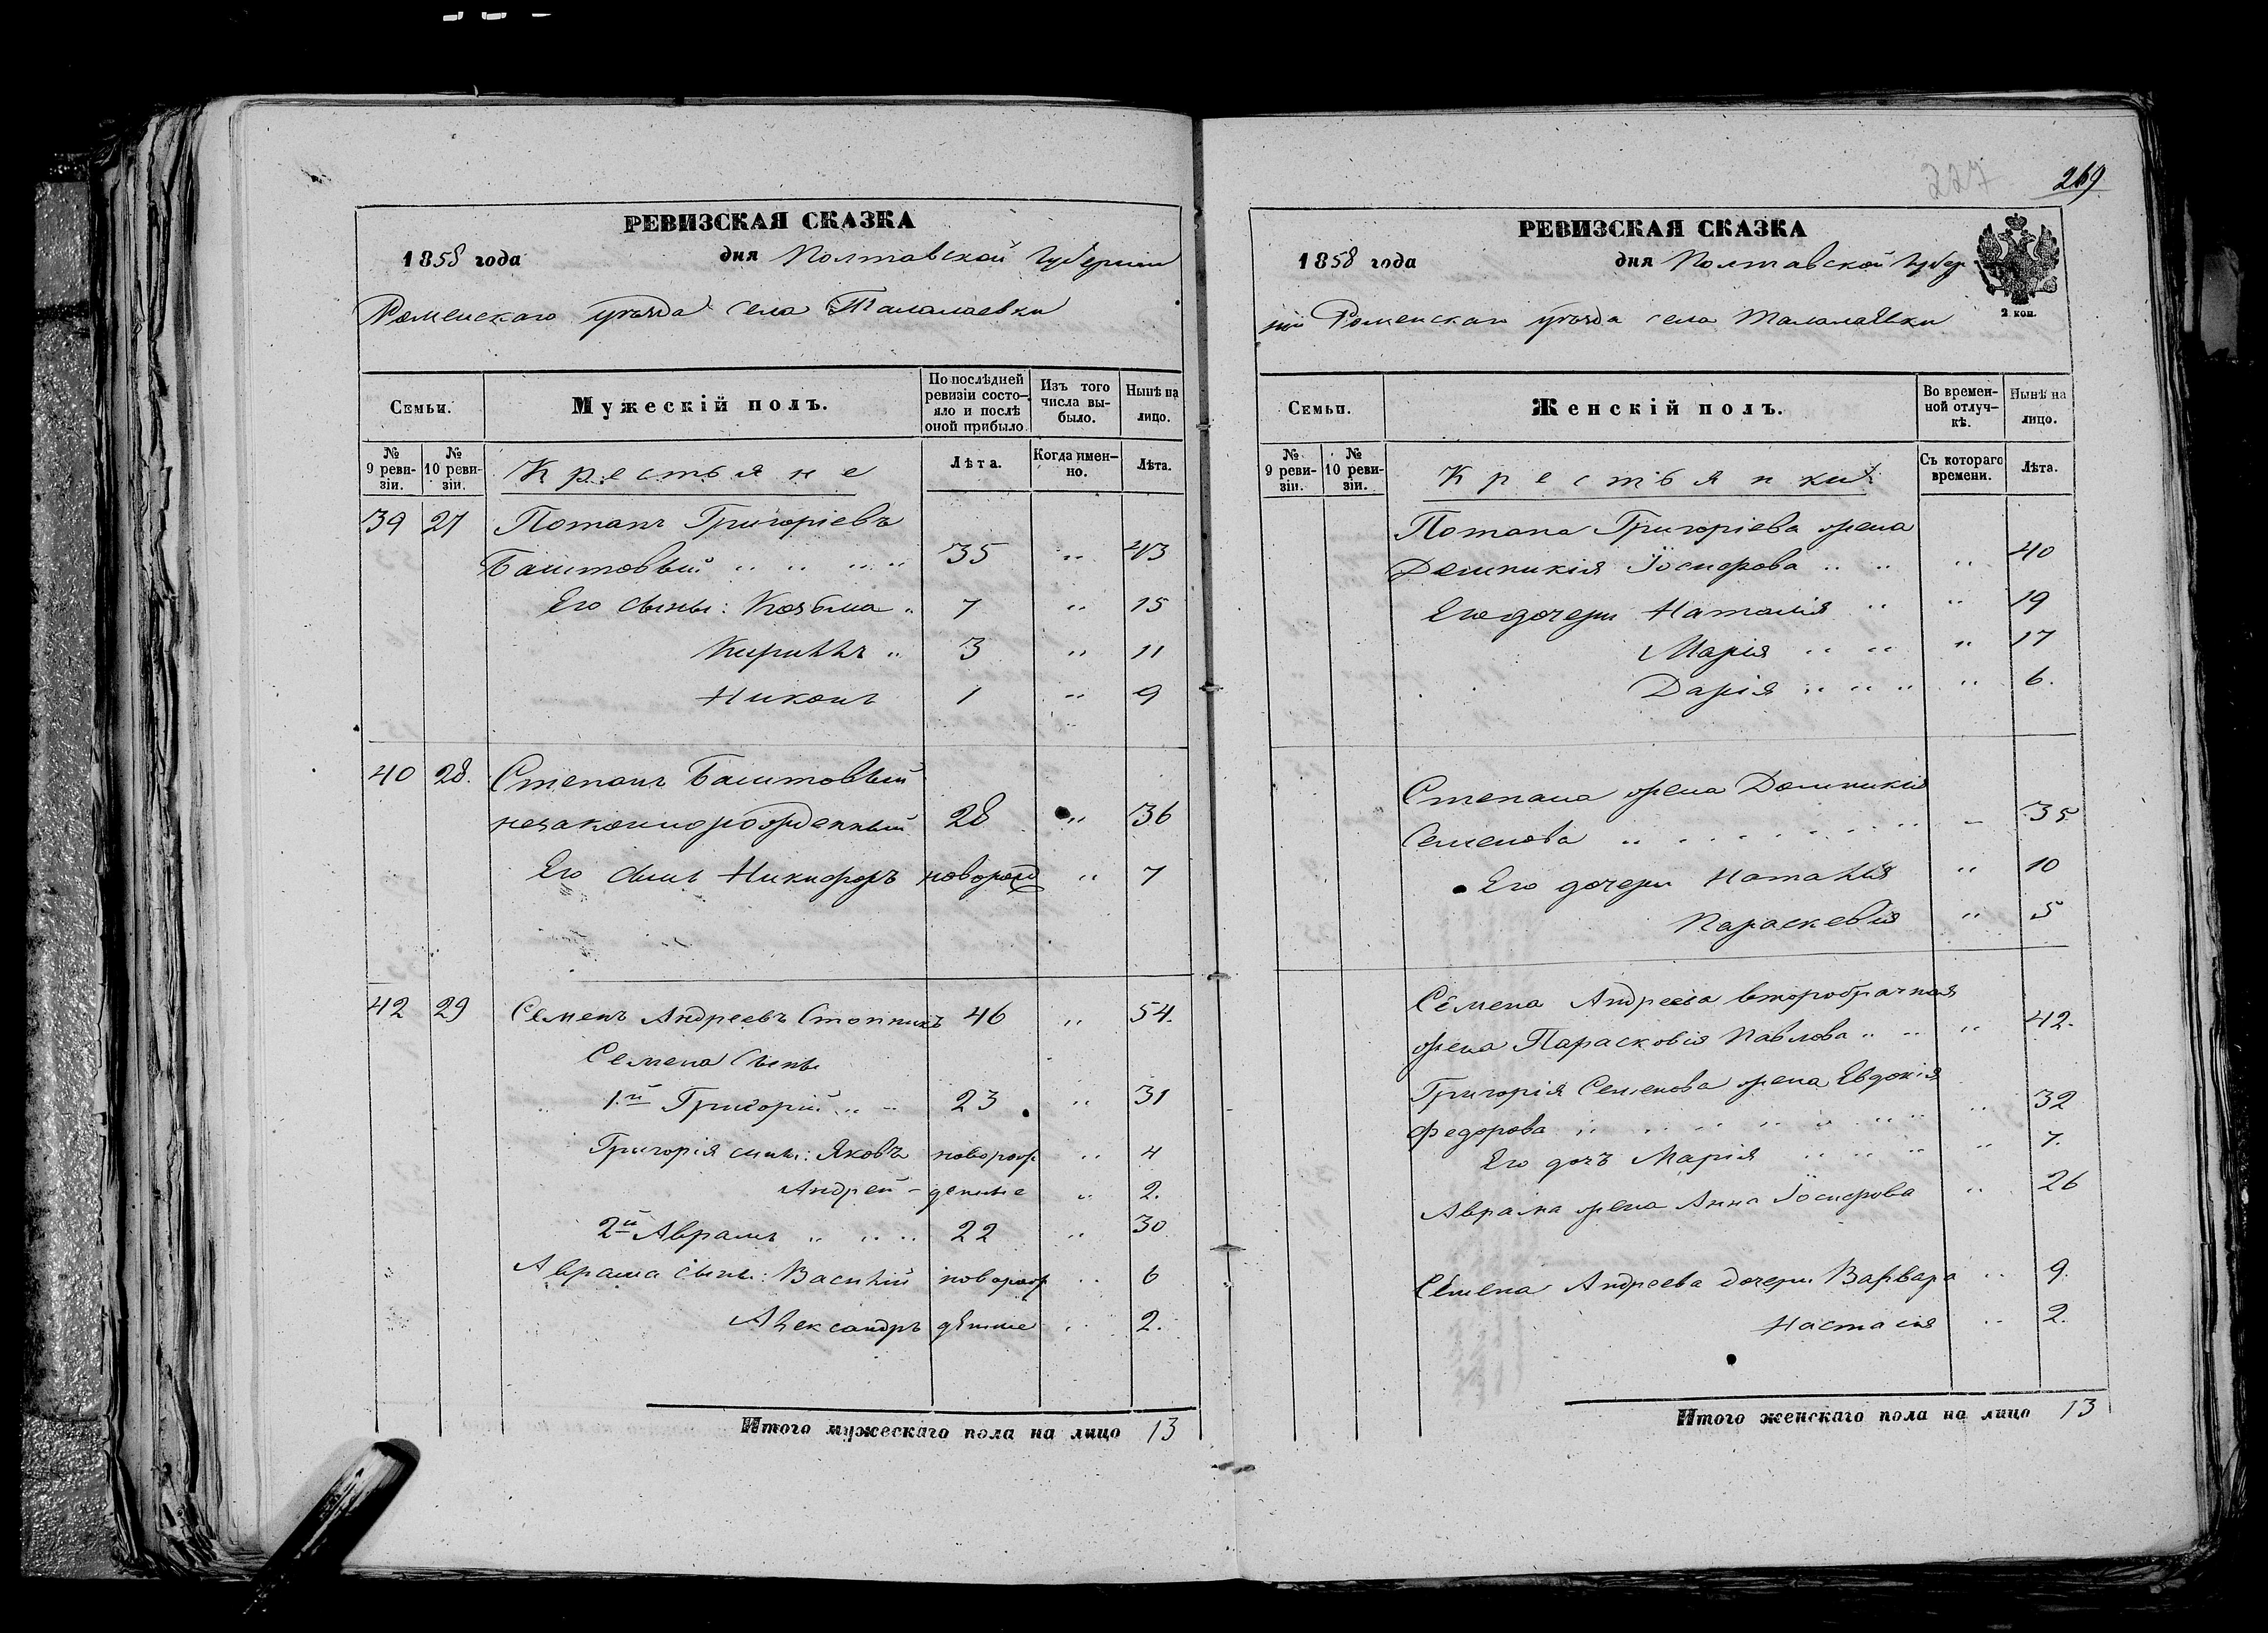 РЕВИЗСКАЯ СКАЗКА
1858 года дня Полтавской Губернии
Роменскаго уѣзда села Талалаевки
Семьи.
Мужескій полъ.
По послѣдней ревизіи состояло и послѣ оной прибыло
Изъ того числа выбыло.
Нынѣ на лицо.
№ 9 ревизіи.
№ 10 ревизіи.
Крестьяне
Лѣта.
Когда именно.
Лѣта.
39 27 Потапъ Григоріевъ
Баштовый " " " " 35 " 43
Его сыны: Козьма " 7 " 15
Кирилъ " 3 " 11
Никонъ 1 " 9
40 28. Степанъ Баштовый
незаконнорожденный 28 " 36
Его сынъ Никифоръ поворожд " 7
42 29 Семенъ Андреевъ Стопникъ 46 " 54.
Семена сыны
1й Григорій " - 23 " 31
Григорія сыны: Яковъ поворож " 4
Андрей - денные " 2.
2й Аврамъ " " " 22 " 30
Аврама сыны: Василій поворож " 6
Александръ дѣнные " 2.
Итого мужескаго пола на лицо 13
227
269
РЕВИЗСКАЯ СКАЗКА
1858 года дня Полтавской Губер
ніи Роменскаго уѣзда села Талалаевки
2 коп.
Семьи.
Женскій полъ.
Во временной отлучкѣ.
Нынѣ на лицо.
№ 9 ревизіи.
№ 10 ревизіи.
Крестьянки
Съ котораго времени.
Лѣта.
Потапа Григоріева жена
Домникія Іосифова " " " 40
Его дочери Наталія " " 19
Марія " " " 17
Дарія " " " " 6.
Степана жена Домникія
Семенова " " 35
Его дочери Наталія " 10
Параскевія " 5
Семена Андреева второбрачная
жена Парасковія Павлова " " " 42.
Григорія Семенова жена Евдокія
Федорова " " " " " " " 32
Его дочъ Марія " " " " 7.
Аврама жена Анна Іосифова " 26
Семена Андреева дочери Варвара " 9.
Настасія " 2.
Итого женскаго пола на лицо 13